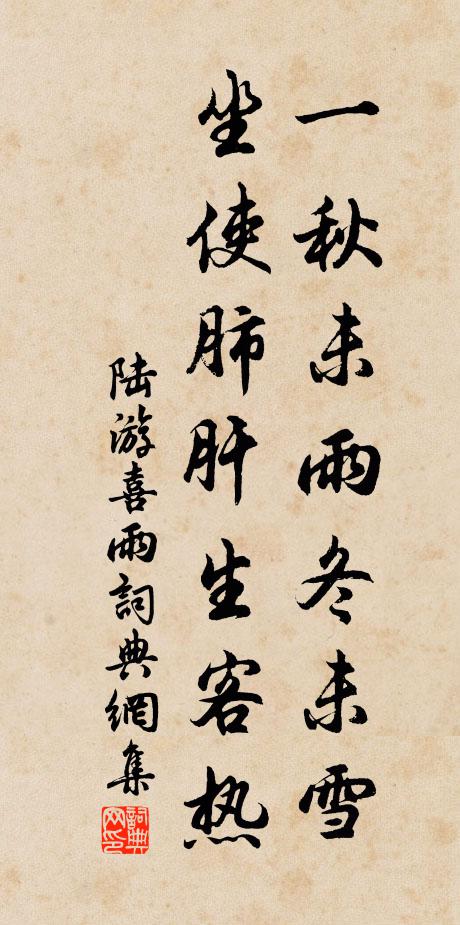 一秋未雨冬未雪
坐使肺肝生客热
陆游喜雨詞典網集
詞典网印